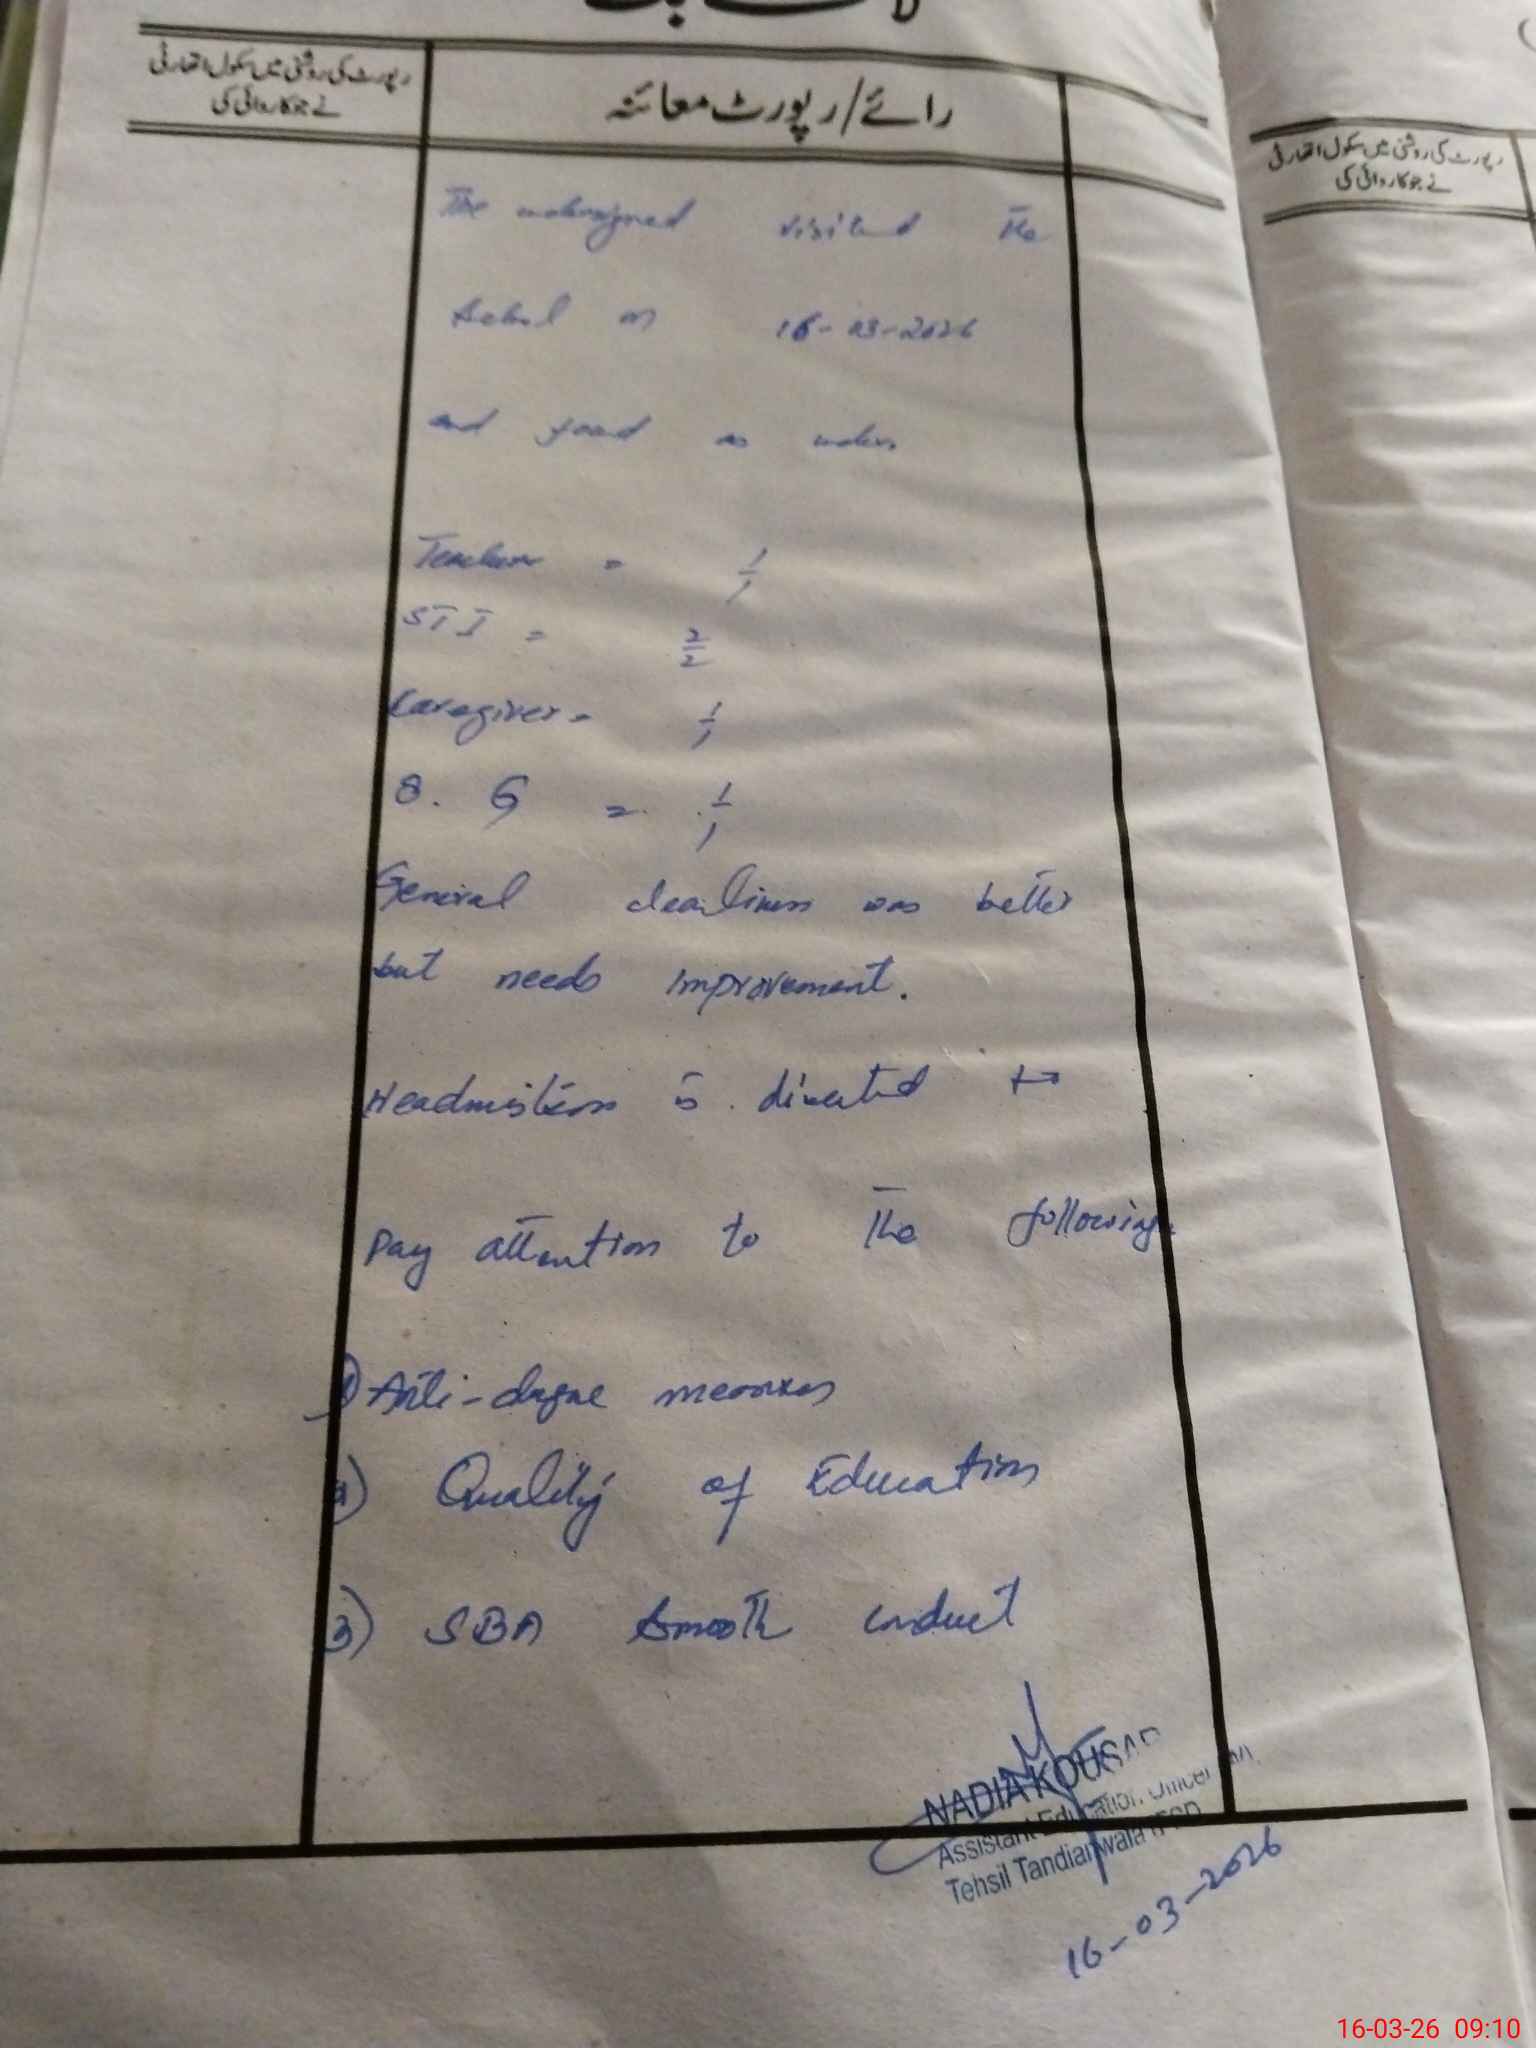 رپورٹ کی روشنی میں سکول اتھارٹی
نے جو کاروائی کی
رائے/رپورٹ معائنہ
The undersigned visited the
school on 16-03-2026
and found as under.
Teacher = 1/1
STI = 2/2
Caregiver = 1/1
S. G = 1/1
General cleanliness was better
but needs improvement.
Headmistress is directed to
Pay attention to the following.
1) Anti-dengue measures
2) Quality of Education
3) SBA smooth conduct
NADIA KOUSAR
Assistant Education Officer
Tehsil Tandianwala
16-03-2026
رپورٹ کی روشنی میں سکول اتھارٹی
نے جو کاروائی کی
16-03-26 09:10